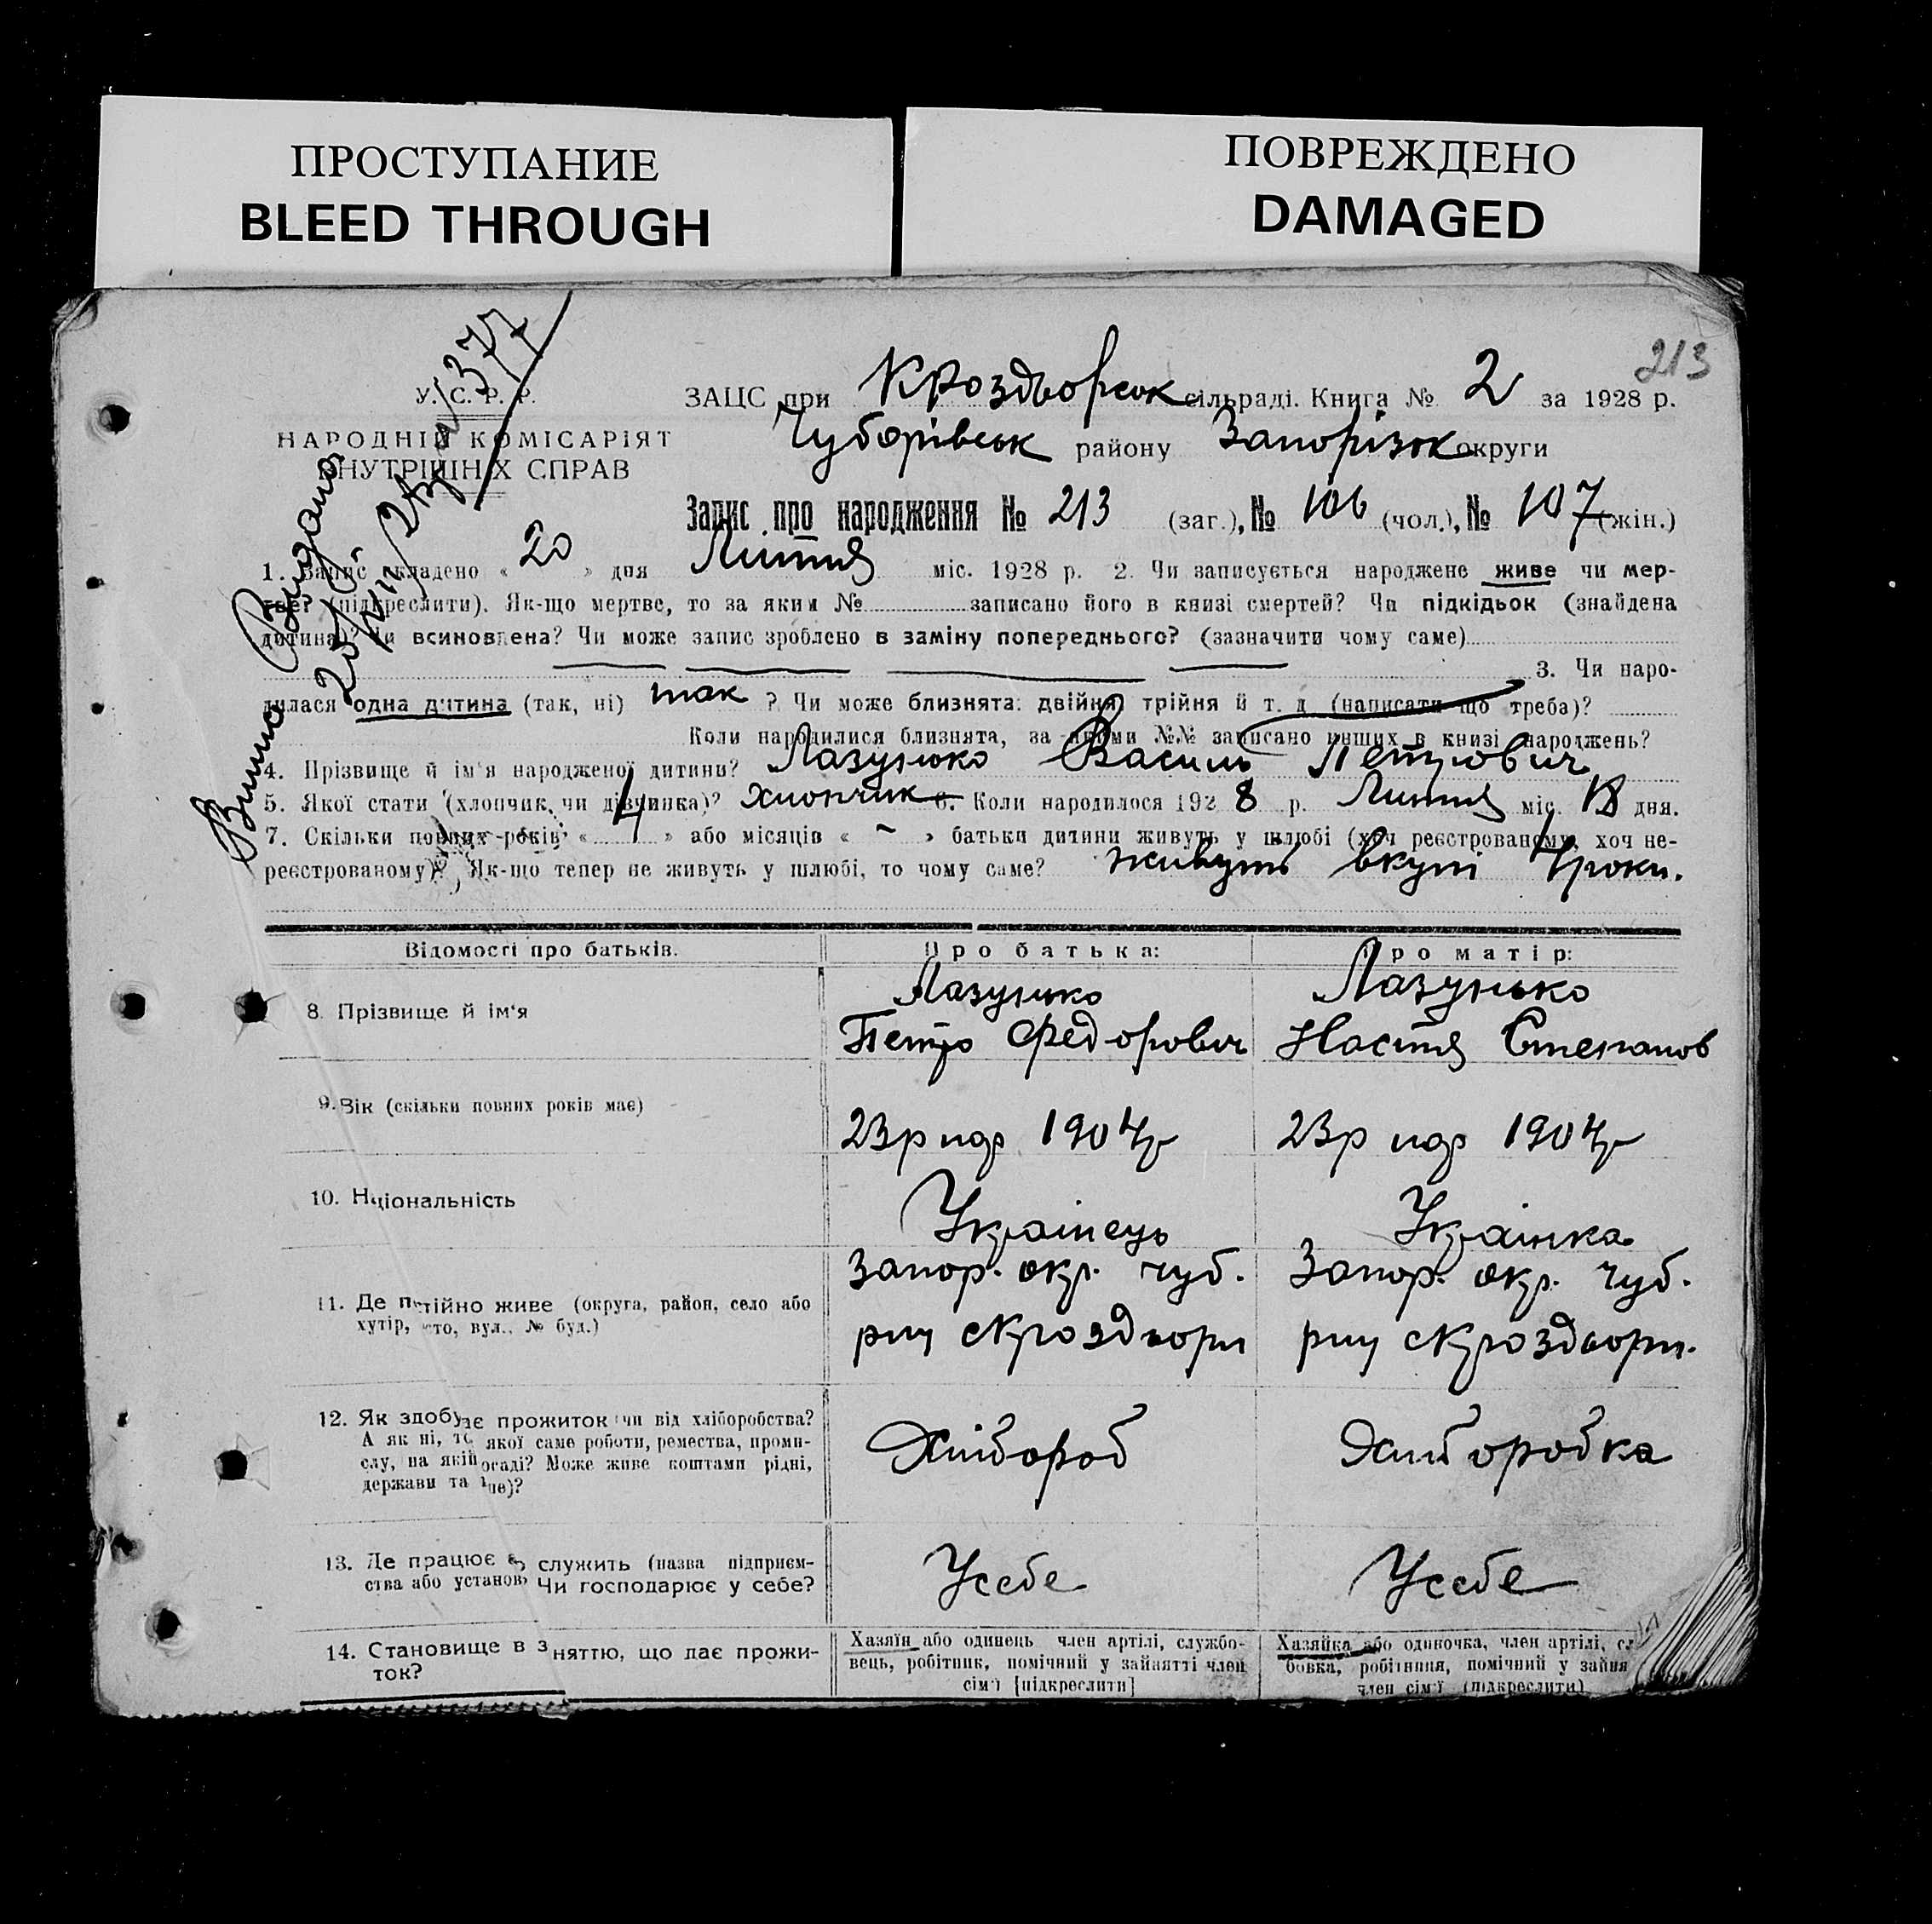 ПРОСТУПАНИЕ
BLEED THROUGH
ПОВРЕЖДЕНО
DAMAGED
213
У. С. Р. Р.
НАРОДНІЙ КОМІСАРІЯТ
ВНУТРІШНІХ СПРАВ
377
Витяг Видано
ЗАЦС при Кроздворськ сільраді. Книга № 2 за 1928 р.
Чубарівськ району Запорізьк округи
Запис про народження № 213 (заг.), № 106 (чол.), № 107 (жін.)
1. Запис складено « 20 » дня Липня міс. 1928 р. 2. Чи записується народжене живе чи мер-
тве? (підкреслити). Як-що мертве, то за яким № записано його в книзі смертей? Чи підкідьок (знайдена
дитина)? Чи всиновлена? Чи може запис зроблено в заміну попереднього? (зазначити чому саме)
3. Чи наро-
дилася одна дитина (так, ні) так ? Чи може близнята: двійня, трійня й т. д. (написати що треба)?
Коли народилися близнята, за якими №№ записано инших в книзі народжень?
4. Прізвище й ім'я народженої дитини? Лазунько Василь Петрович
5. Якої стати (хлопчик, чи дівчинка)? хлопчик 6. Коли народилося 192 8 р. Липня міс. 18 дня.
7. Скільки повних років « 4 » або місяців « – » батьки дитини живуть у шлюбі (хоч реєстрованому, хоч не-
реєстрованому)? Як-що тепер не живуть у шлюбі, то чому саме? живуть вкупі 4 роки.
Відомості про батьків. Про батька: Про матір:
8. Прізвище й ім'я
Лазунько
Петро Федорович
Лазунько
Настя Степанов
9. Вік (скільки повних років має)
23 р нар 1904 р
23 р нар 1904 р
10. Національність
Українець
Українка
11. Де постійно живе (округа, район, село або
хутір, місто, вул., № буд.)
Запор. окр. чуб.
рну с Кроздвори
Запор. окр. чуб.
рну с Кроздвори.
12. Як здобуває прожиток (чи від хліборобства?
А як ні, то якої саме роботи, ремества, проми-
слу, на якій посаді? Може живе коштами рідні,
держави та инше)?
Хлібороб
Хліборобка
13. Де працює чи служить (назва підприєм-
ства або установи) Чи господарює у себе?
У себе
У себе
14. Становище в заняттю, що дає прожи-
ток?
Хазяїн або одинець член артілі, службо-
вець, робітник, помічний у зайнятті член
сім'ї [підкреслити]
Хазяйка або одиночка, член артілі, сл
бовка, робітниця, помічний у зайня
член сім'ї (підкреслити)